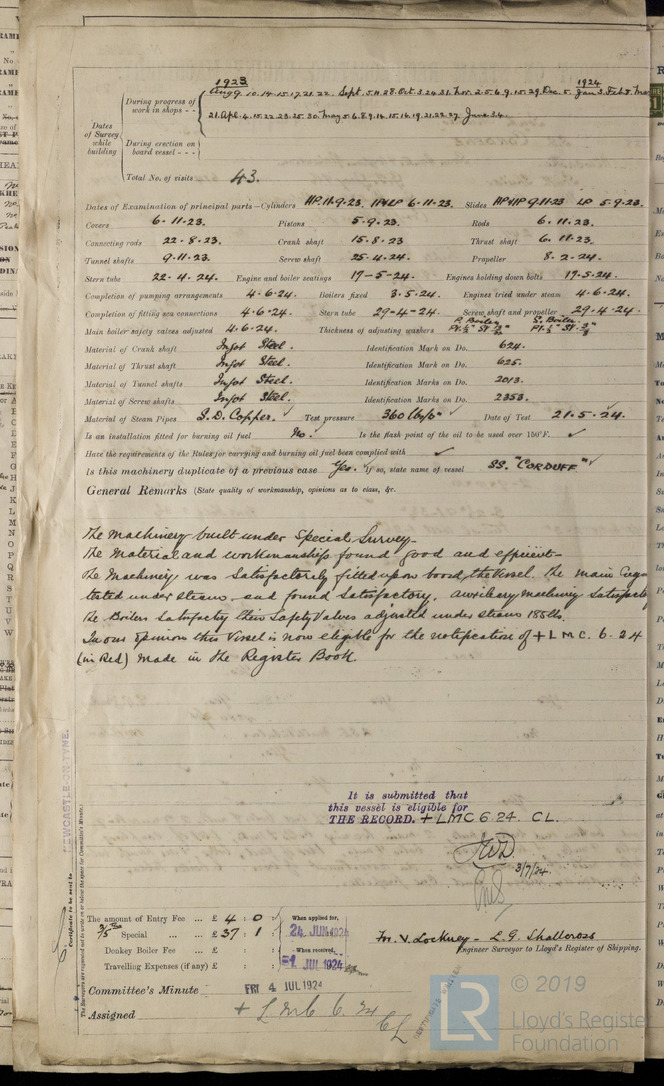 1923
1924
Dates of Survey while building
During progress of work in shops - -
Aug 9. 10. 14. 15. 17. 21. 22. Sept. 5. 11. 28. Oct. 3. 24. 31. Nov. 2. 5. 6. 9. 15. 29. Dec. 5. Jan. 3. Feb. 8. Mar
21. Apl. 4. 15. 22. 23. 25. 30. May 5. 6. 8. 9. 14. 15. 16. 19. 21. 22. 27. June 3. 4.
During erection on board vessel - - -
Total No. of visits 43.
Dates of Examination of principal parts—Cylinders HP. 11.9.23. IP&LP 6.11.23. Slides HP&IP 9.11.23 LP 5.9.23.
Covers 6.11.23. Pistons 5.9.23. Rods 6.11.23.
Connecting rods 22.8.23. Crank shaft 15.8.23 Thrust shaft 6.11.23.
Tunnel shafts 9.11.23. Screw shaft 25.4.24. Propeller 8.2.24.
Stern tube 22.4.24. Engine and boiler seatings 17-5-24. Engines holding down bolts 17.5.24.
Completion of pumping arrangements 4.6.24. Boilers fixed 3.5.24. Engines tried under steam 4.6.24.
Completion of fitting sea connections 4.6.24. Stern tube 29-4-24. Screw shaft and propeller 29.4.24.
Main boiler safety valves adjusted 4.6.24. Thickness of adjusting washers P. Boiler S. Boiler
Material of Crank shaft Ingot Steel. Identification Mark on Do. 624.
Material of Thrust shaft Ingot Steel. Identification Mark on Do. 625.
Material of Tunnel shafts Ingot Steel. Identification Marks on Do. 2013.
Material of Screw shafts Ingot Steel. Identification Marks on Do. 2353.
Material of Steam Pipes S.D. Copper. ✓ Test pressure 360 lbs/□" ✓ Date of Test 21.5.24.
Is an installation fitted for burning oil fuel No. ✓ Is the flash point of the oil to be used over 150°F. ✓
Have the requirements of the Rules for carrying and burning oil fuel been complied with ✓
Is this machinery duplicate of a previous case Yes. ✓ If so, state name of vessel SS. "CORDUFF" ✓
General Remarks (State quality of workmanship, opinions as to class, &c.
The Machinery built under Special Survey.
The Material and workmanship found good and efficient.
The Machinery was Satisfactorily fitted upon board, the Vessel. The main Engs
tested under steam and found Satisfactory, auxiliary machinery Satisfac
The Boilers Satisfactry their Safety Valves adjusted under steam 185 lbs.
In our opinion this Vessel is now eligible for the notification of + L M C. 6.24
(in Red) made in the Register Book.
NEWCASTLE-ON-TYNE.
Certificate to be sent to
The Surveyors are requested not to write on or below the space for Committee's Minute.
It is submitted that
this vessel is eligible for
THE RECORD. + LMC 6 24. CL.
3/7/24.
The amount of Entry Fee ... £ 4 : 0 :
Special ... ... £ 37 : 1 :
Donkey Boiler Fee ... £ : :
Travelling Expenses (if any) £ : :
When applied for,
24 JUN 1924
When received,
1 JUL 1924
Wm. V. Lockney - L. G. Shallcross
Engineer Surveyor to Lloyd's Register of Shipping.
Committee's Minute FRI 4 JUL 1924
Assigned + L M C 6.24
CL
CERTIFICATE WRITTEN
LR
© 2019
Lloyd's Register
Foundation